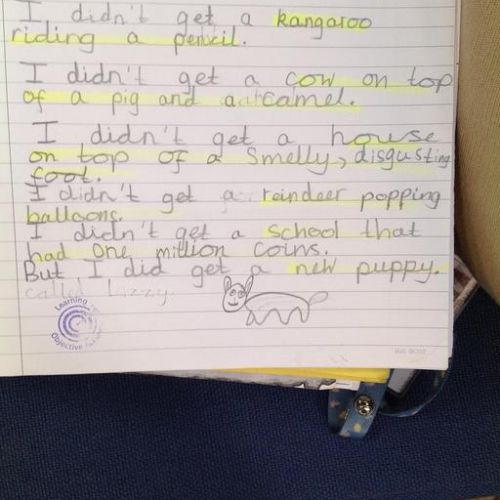 I didn't get a kangaroo
riding a pencil.
I didn't get a cow on top
of a pig and a camel.
I didn't get a house
on top of a smelly, disgusting
foot.
I didn't get a reindeer popping
balloons.
I didn't get a school that
had one million coins.
But I did get a new puppy.
called Lizzy.
Learning
Objective